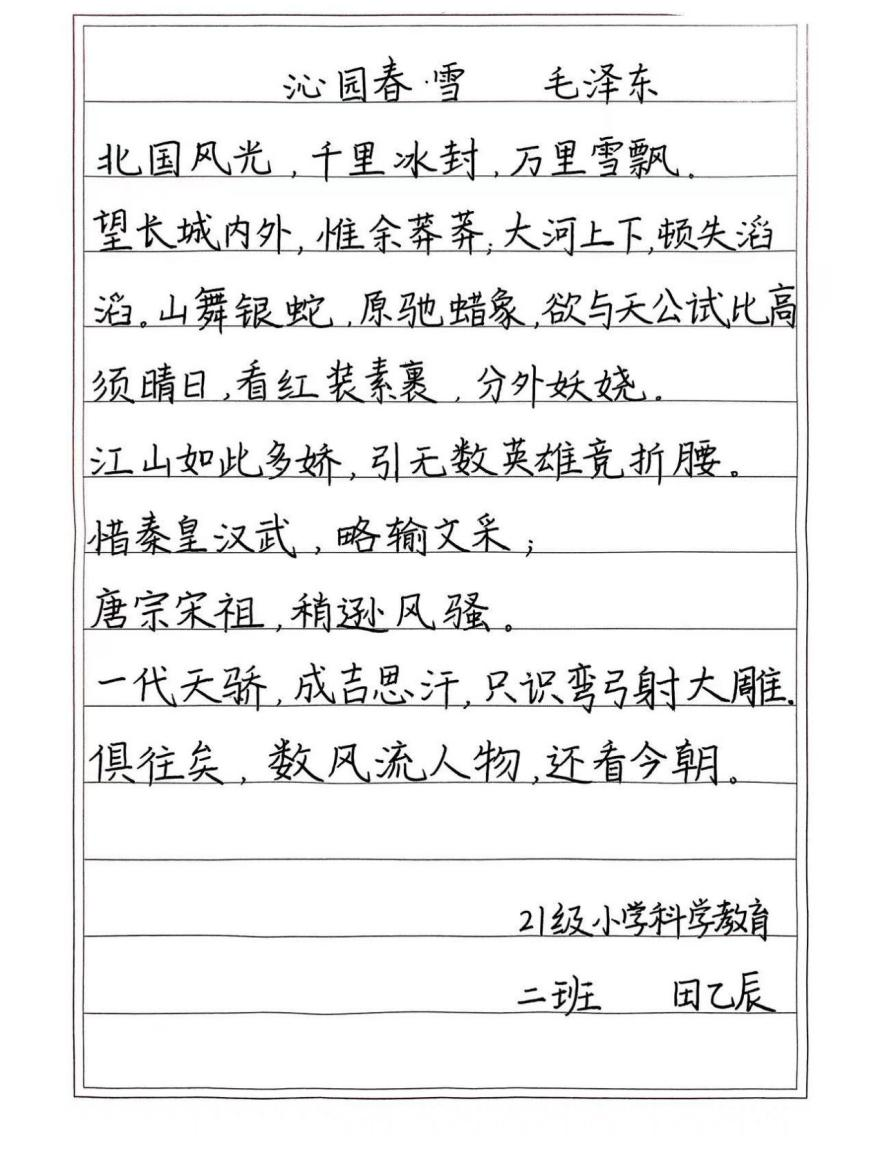 沁园春·雪 毛泽东
北国风光,千里冰封,万里雪飘。
望长城内外,惟余莽莽;大河上下,顿失滔
滔。山舞银蛇,原驰蜡象,欲与天公试比高
须晴日,看红装素裹,分外妖娆。
江山如此多娇,引无数英雄竞折腰。
惜秦皇汉武,略输文采;
唐宗宋祖,稍逊风骚。
一代天骄,成吉思汗,只识弯弓射大雕.
俱往矣,数风流人物,还看今朝。
21级小学科学教育
二班 田乙辰